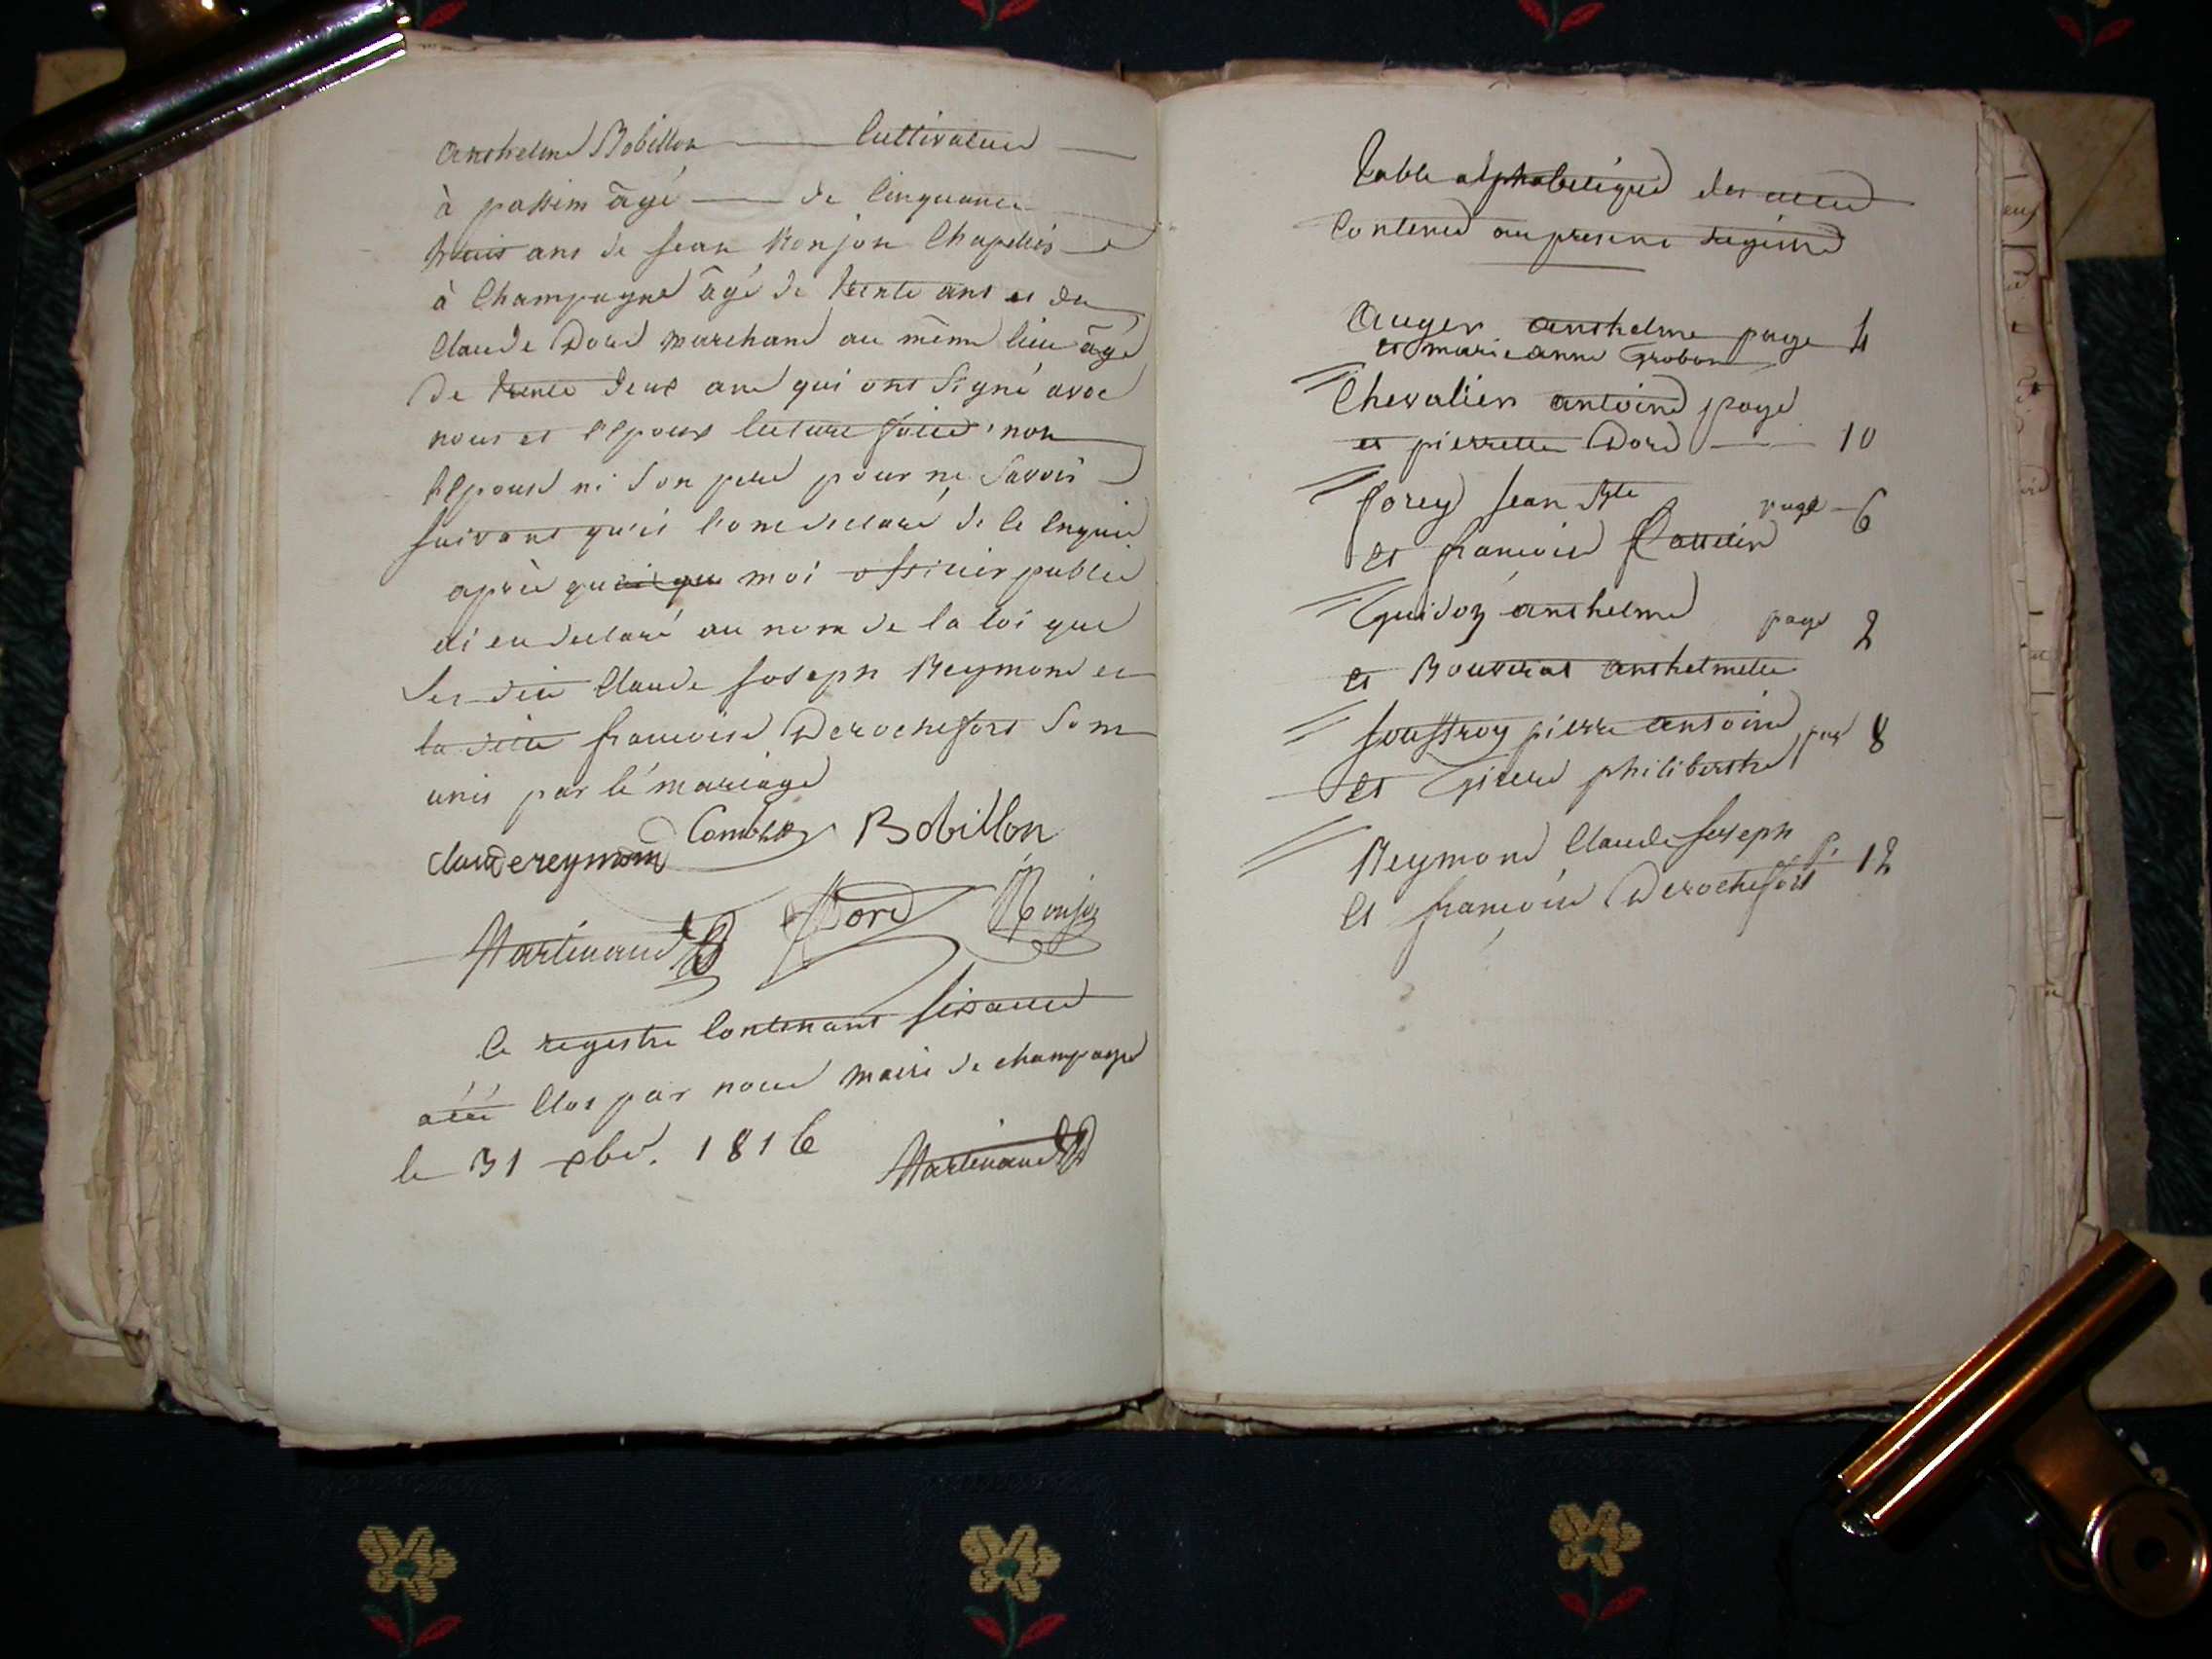 anthelme Bobillon cultivateur
à passin âgé de cinquante
trois ans de jean Monjon Chapelier
à Champagne âgé de trente ans et de
Claude Dord marchand au même lieu âgé
de trente deux ans qui ont signé avec
nous et l'epoux lecture faite, non
l'epouse ni son pere pour ne savoir
suivant qu'il l'ont declaré de ce enquis
après quoi moi officier public
ai en declaré au nom de la loi que
les dits Claude Joseph Reymond et
la dite francoise Derochefort sont
unis par le mariage
claudereymom Combet Bobillon
Martinand Dord Monjon
Ce registre contenant six actes
a été Clos par nous maire de champagne
le 31 xbre. 1816 Martinand
Table alphabetique des actes
Contenus au present régistre
Auger anthelme page 4
et marieanne Grobon
Chevalier antoine page
et pierrette Dord 10
forey jean Bte page 6
et francoise
Guidoz anthelme page 2
et anthelmette
jouffroy pierre antoine pag 8
et philiberthe
Reymond Claude Joseph p. 12
et francoise Derochefort